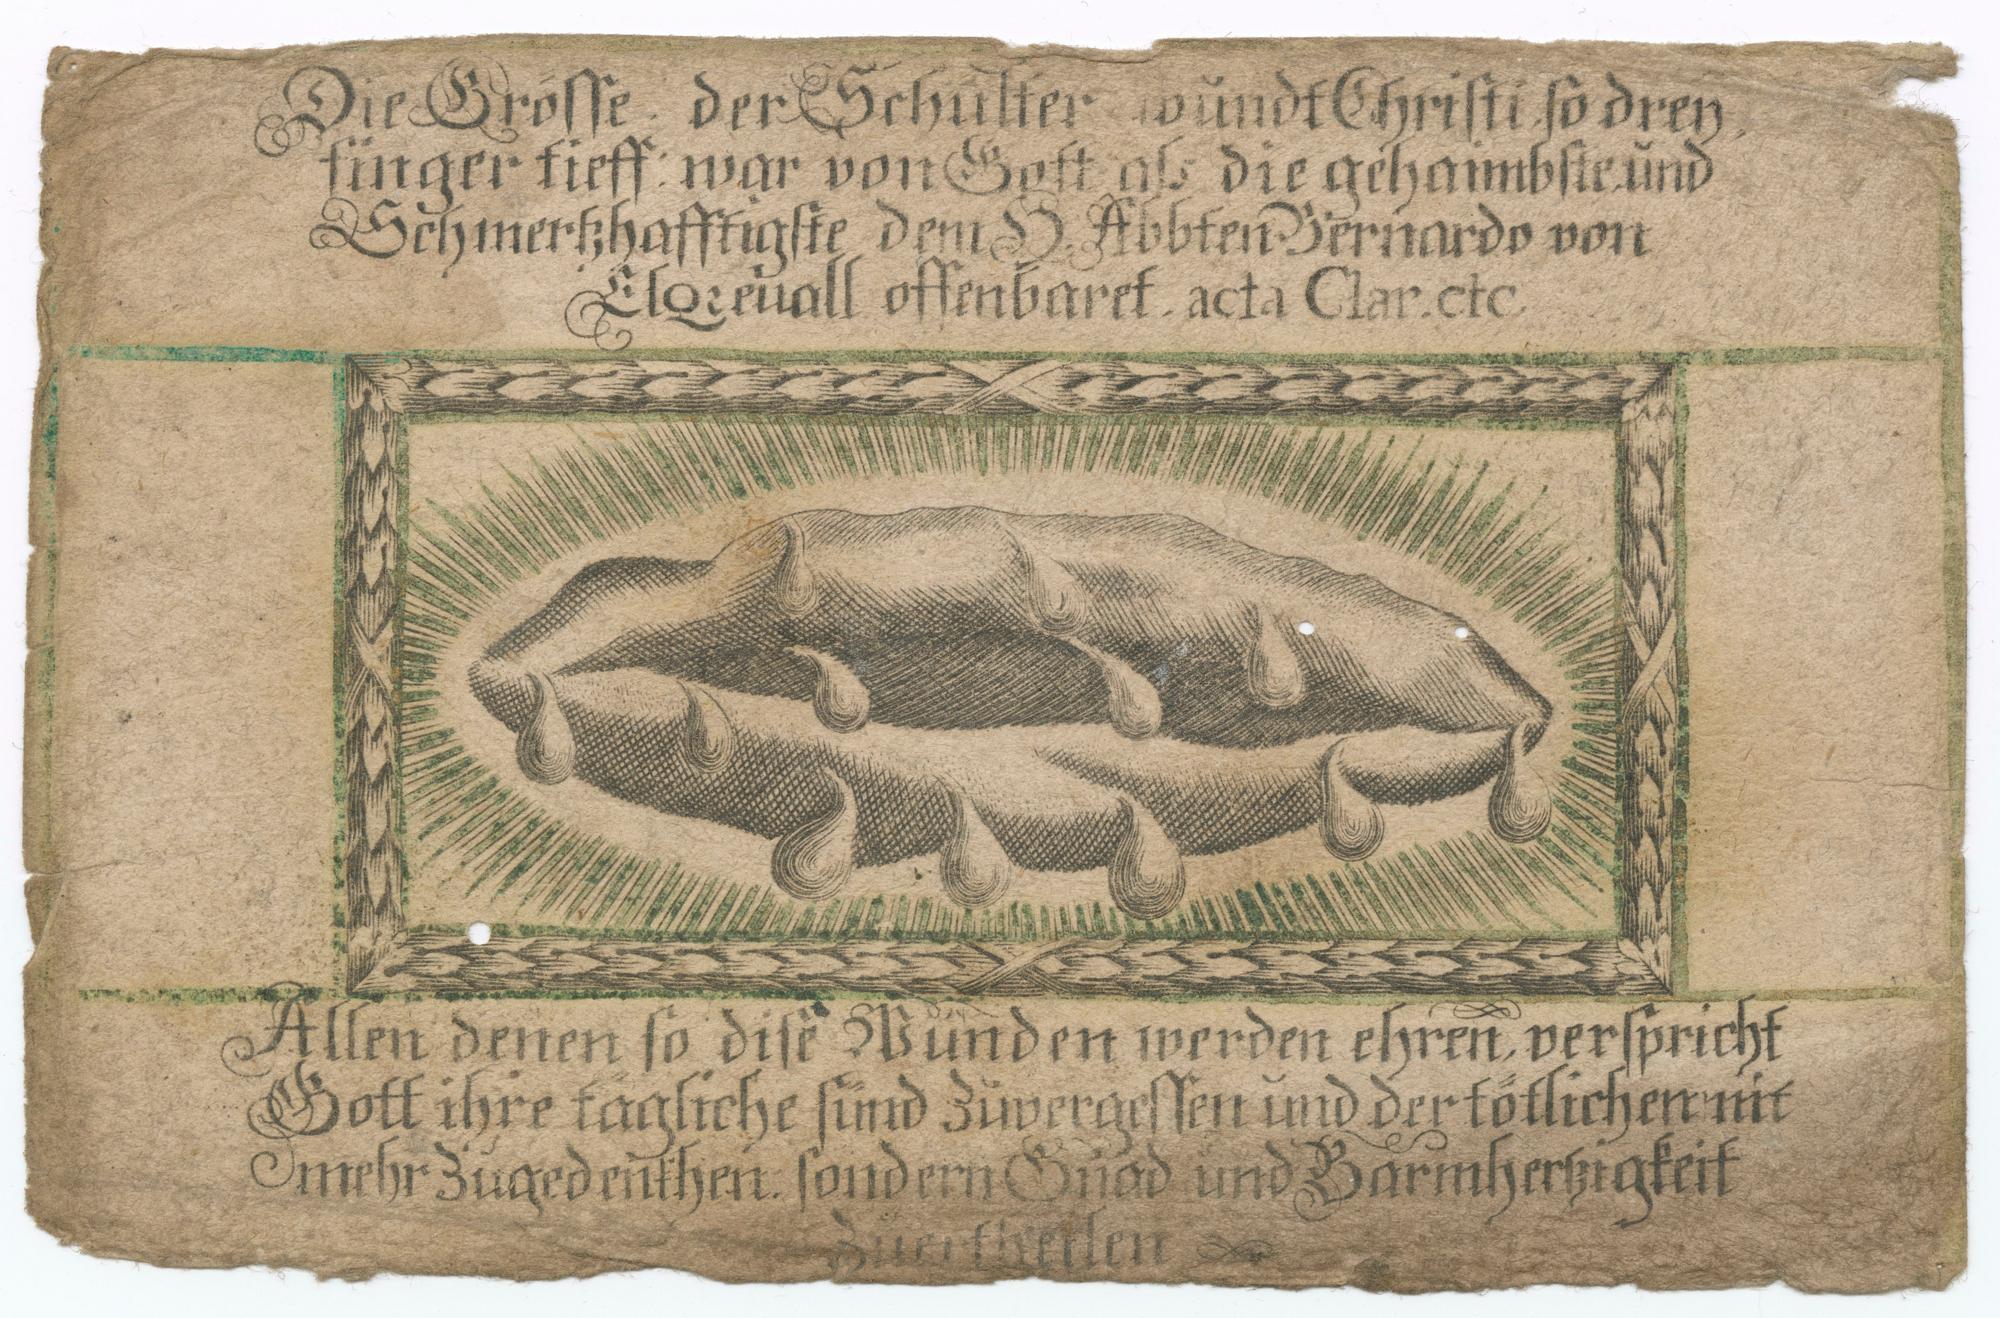 Die Grösse der Schulter wundt Christi so dreÿ
finger tieff: war von Gott als die gehaimbste und
Schmertzhafftigste dem H. Abbten Bernardo von
offenbaret. acta Clar. etc.
Allen denen so dise Wunden werden ehren, verspricht
Gott ihre tägliche sünd Zuvergessen und der tötlichen nit
mehr Zugedenkhen. sondern Gnad und Barmhertzigkeit
Zuertheilen